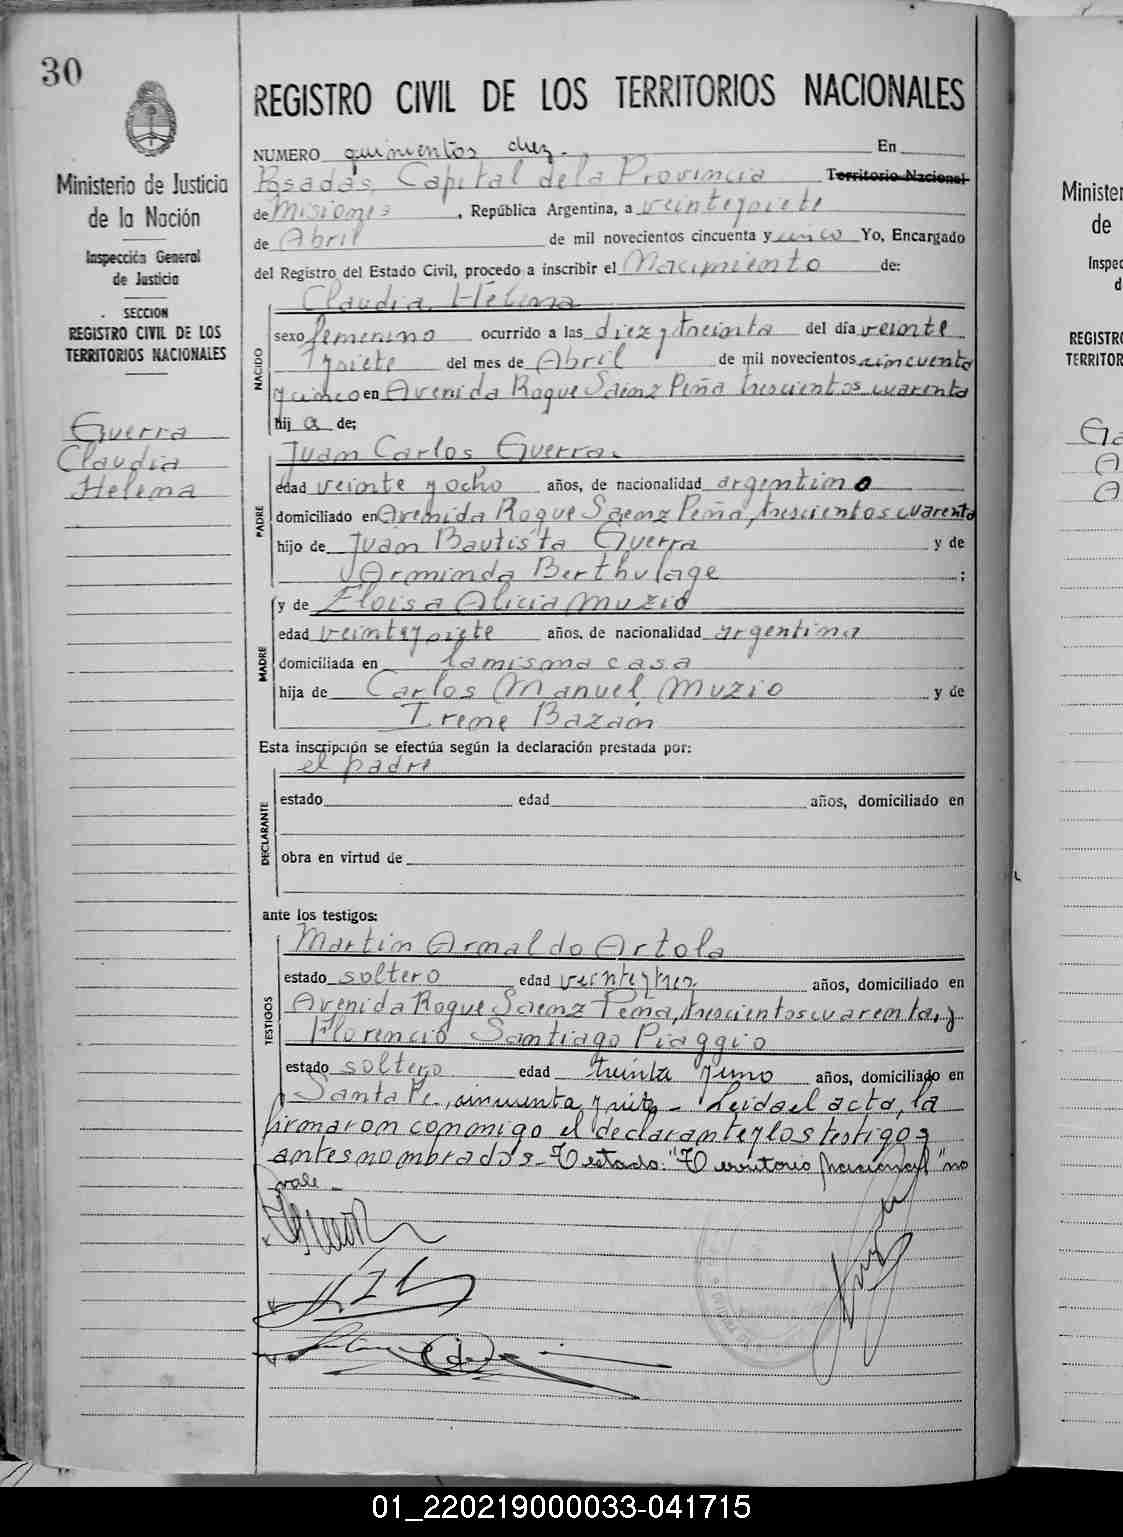 30
Ministerio de Justicia
de la Nación
Inspección General
de Justicia
SECCION
REGISTRO CIVIL DE LOS
TERRITORIOS NACIONALES
Guerra
Claudia
Helena
REGISTRO CIVIL DE LOS TERRITORIOS NACIONALES
NUMERO quinientos diez. En
Posadas, Capital de la Provincia Territorio Nacional
de Misiones, República Argentina, a veintisiete
de Abril de mil novecientos cincuenta y cinco Yo, Encargado
del Registro del Estado Civil, procedo a inscribir el Nacimiento de:
NACIDO
Claudia Helena
sexo femenino ocurrido a las diez y treinta del día veinte
y siete del mes de Abril de mil novecientos cincuenta
y cinco en Avenida Roque Saenz Peña trescientos cuarenta
hij a de:
PADRE
Juan Carlos Guerra.
edad veinte y ocho años, de nacionalidad argentino
domiciliado en Avenida Roque Saenz Peña, trescientos cuarenta
hijo de Juan Bautista Guerra y de
Arminda Berthulage ;
MADRE
y de Eloisa Alicia Muzio
edad veinte y siete años, de nacionalidad argentina
domiciliada en la misma casa
hija de Carlos Manuel Muzio y de
Irene Bazán
Esta inscripción se efectúa según la declaración prestada por:
DECLARANTE
el padre
estado edad años, domiciliado en
obra en virtud de
ante los testigos:
TESTIGOS
Martin Arnaldo Artola
estado soltero edad veinte y tres años, domiciliado en
Avenida Roque Saenz Peña, trescientos cuarenta, y
Florencio Santiago Piaggio
estado soltero edad treinta y uno años, domiciliado en
Santa Fe, cincuenta y siete - Leida el acta, la
firmaron conmigo el declarante y los testigos
antes nombrados - Testado: "Territorio Nacional" no
vale -
Ministe
de
Inspec
d
REGISTR
TERRITOR
01_220219000033-041715